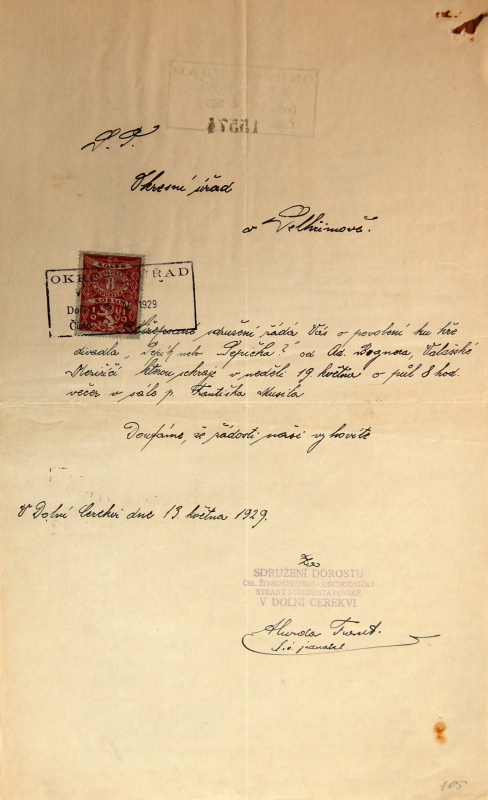 105
15574
P. T.
Okresní úřad
v Pelhřimově.
OKRESNÍ ÚŘAD
1929
KOLEK
KORUNA
sdružení žádá Vás o povolení ku hře
divadla „Pepič nebo Pepička?" od Ad. Bognera, Valašské
Meziříčí kterou sehraje v neděli 19 května o půl 8 hod.
večer v sále p. Františka Musila
Doufáme, že žádosti naší vyhovíte
V Dolní Cerekvi dne 13. května 1929.
Za
SDRUŽENÍ DOROSTU
ČSL. ŽIVNOSTENSKO - OBCHODNICKÉ
STRANY STŘEDOSTAVOVSKÉ
V DOLNÍ CEREKVI
t.č. jednatel
105